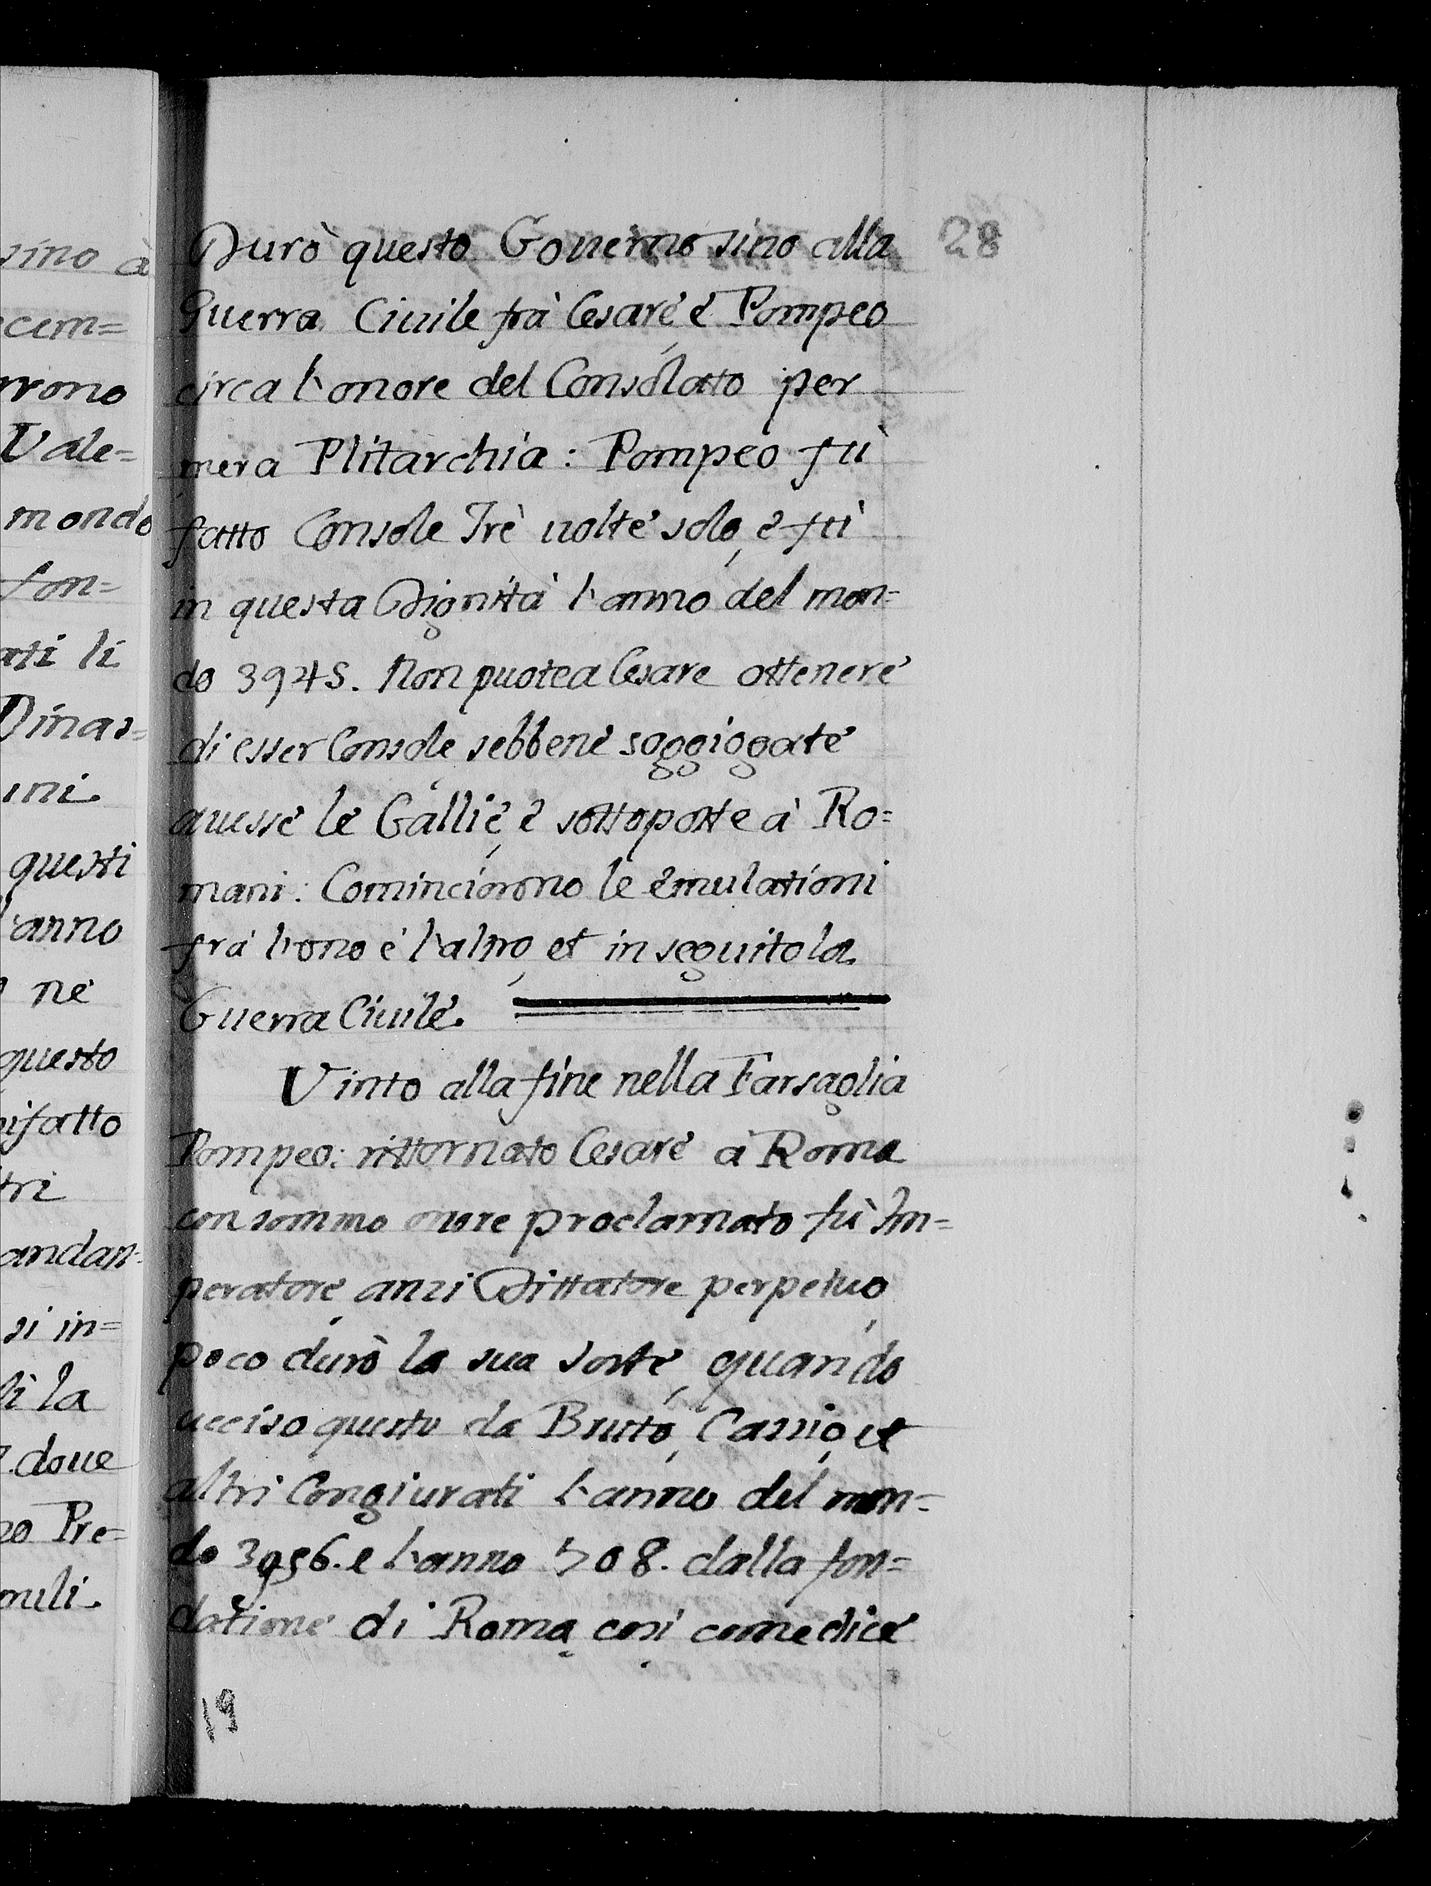 28
Durò questo Gouerno sino alla
Guerra Ciuile frà Cesare, è Pompeo
circa l'onore del Consolato per
mera Plitarchia: Pompeo fù
fatto Console Trè uolte solo, è fù
in questa Dignità l'anno del mon=
do 3945. Non puotea Cesare ottenere
di esser Console sebbene soggiogate
auesse le Gallie, è sottoposte à Ro=
mani: Cominciorono le emulationi
frà l'ono è l'altro, et in seguito la
Guerra Ciuile.
Vinto alla fine nella Farsaglia
Pompeo: rittornato Cesare à Roma
con sommo onore proclamato fù Im=
peratore, anzi Dittatore perpetuo,
poco durò la sua sorte, quando
ucciso questo da Bruto, Cassio, et
altri Congiurati l'anno del mon=
do 3956. e l'anno 708. dalla fon=
datione di Roma così come dice
19
sino à
cem=
rrono
Vale=
mondo
fon=
ati li
Dinas=
ini
questi
l'anno
ne
questo
ifatto
tri
andan=
si in=
li la
doue
no Pre=
muli